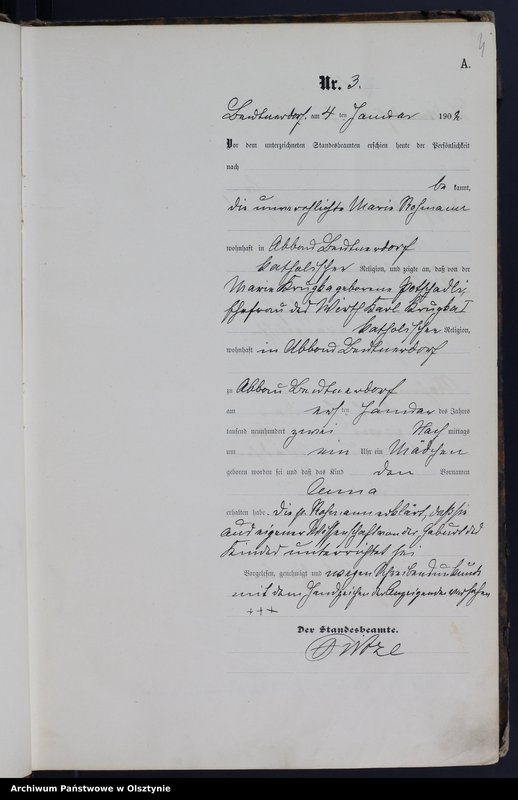 4
A.
Nr. 3.
Beutnerdorf, am 4 ten Januar 1902
Vor dem unterzeichneten Standesbeamten erschien heute der Persönlichkeit
nach
be kannt,
die unverehlichte Marie Rohmann
wohnhaft in Abbau Beutnerdorf
katholischer Religion, und zeigte an, daß von der
Marie Krugka geborene
Ehefrau des Wirth Karl Krugka I
katholischer Religion,
wohnhaft in Abbau Beutnerdorf
zu Abbau Beutnerdorf
am ersten Januar des Jahres
tausend neunhundert zwei Nach mittags
um ein Uhr ein Mädchen
geboren worden sei und daß das Kind den Vornamen
Anna
erhalten habe. Die p. Rohmann erklärt, daß sie
aus eigener Wissenschaft von der Geburt des
Kindes unterrichtet sei
Vorgelesen, genehmigt und wegen Schreibensunkunde
mit dem Handzeichen der Anzeigende versehen
+++
Der Standesbeamte.
Archiwum Państwowe w Olsztynie